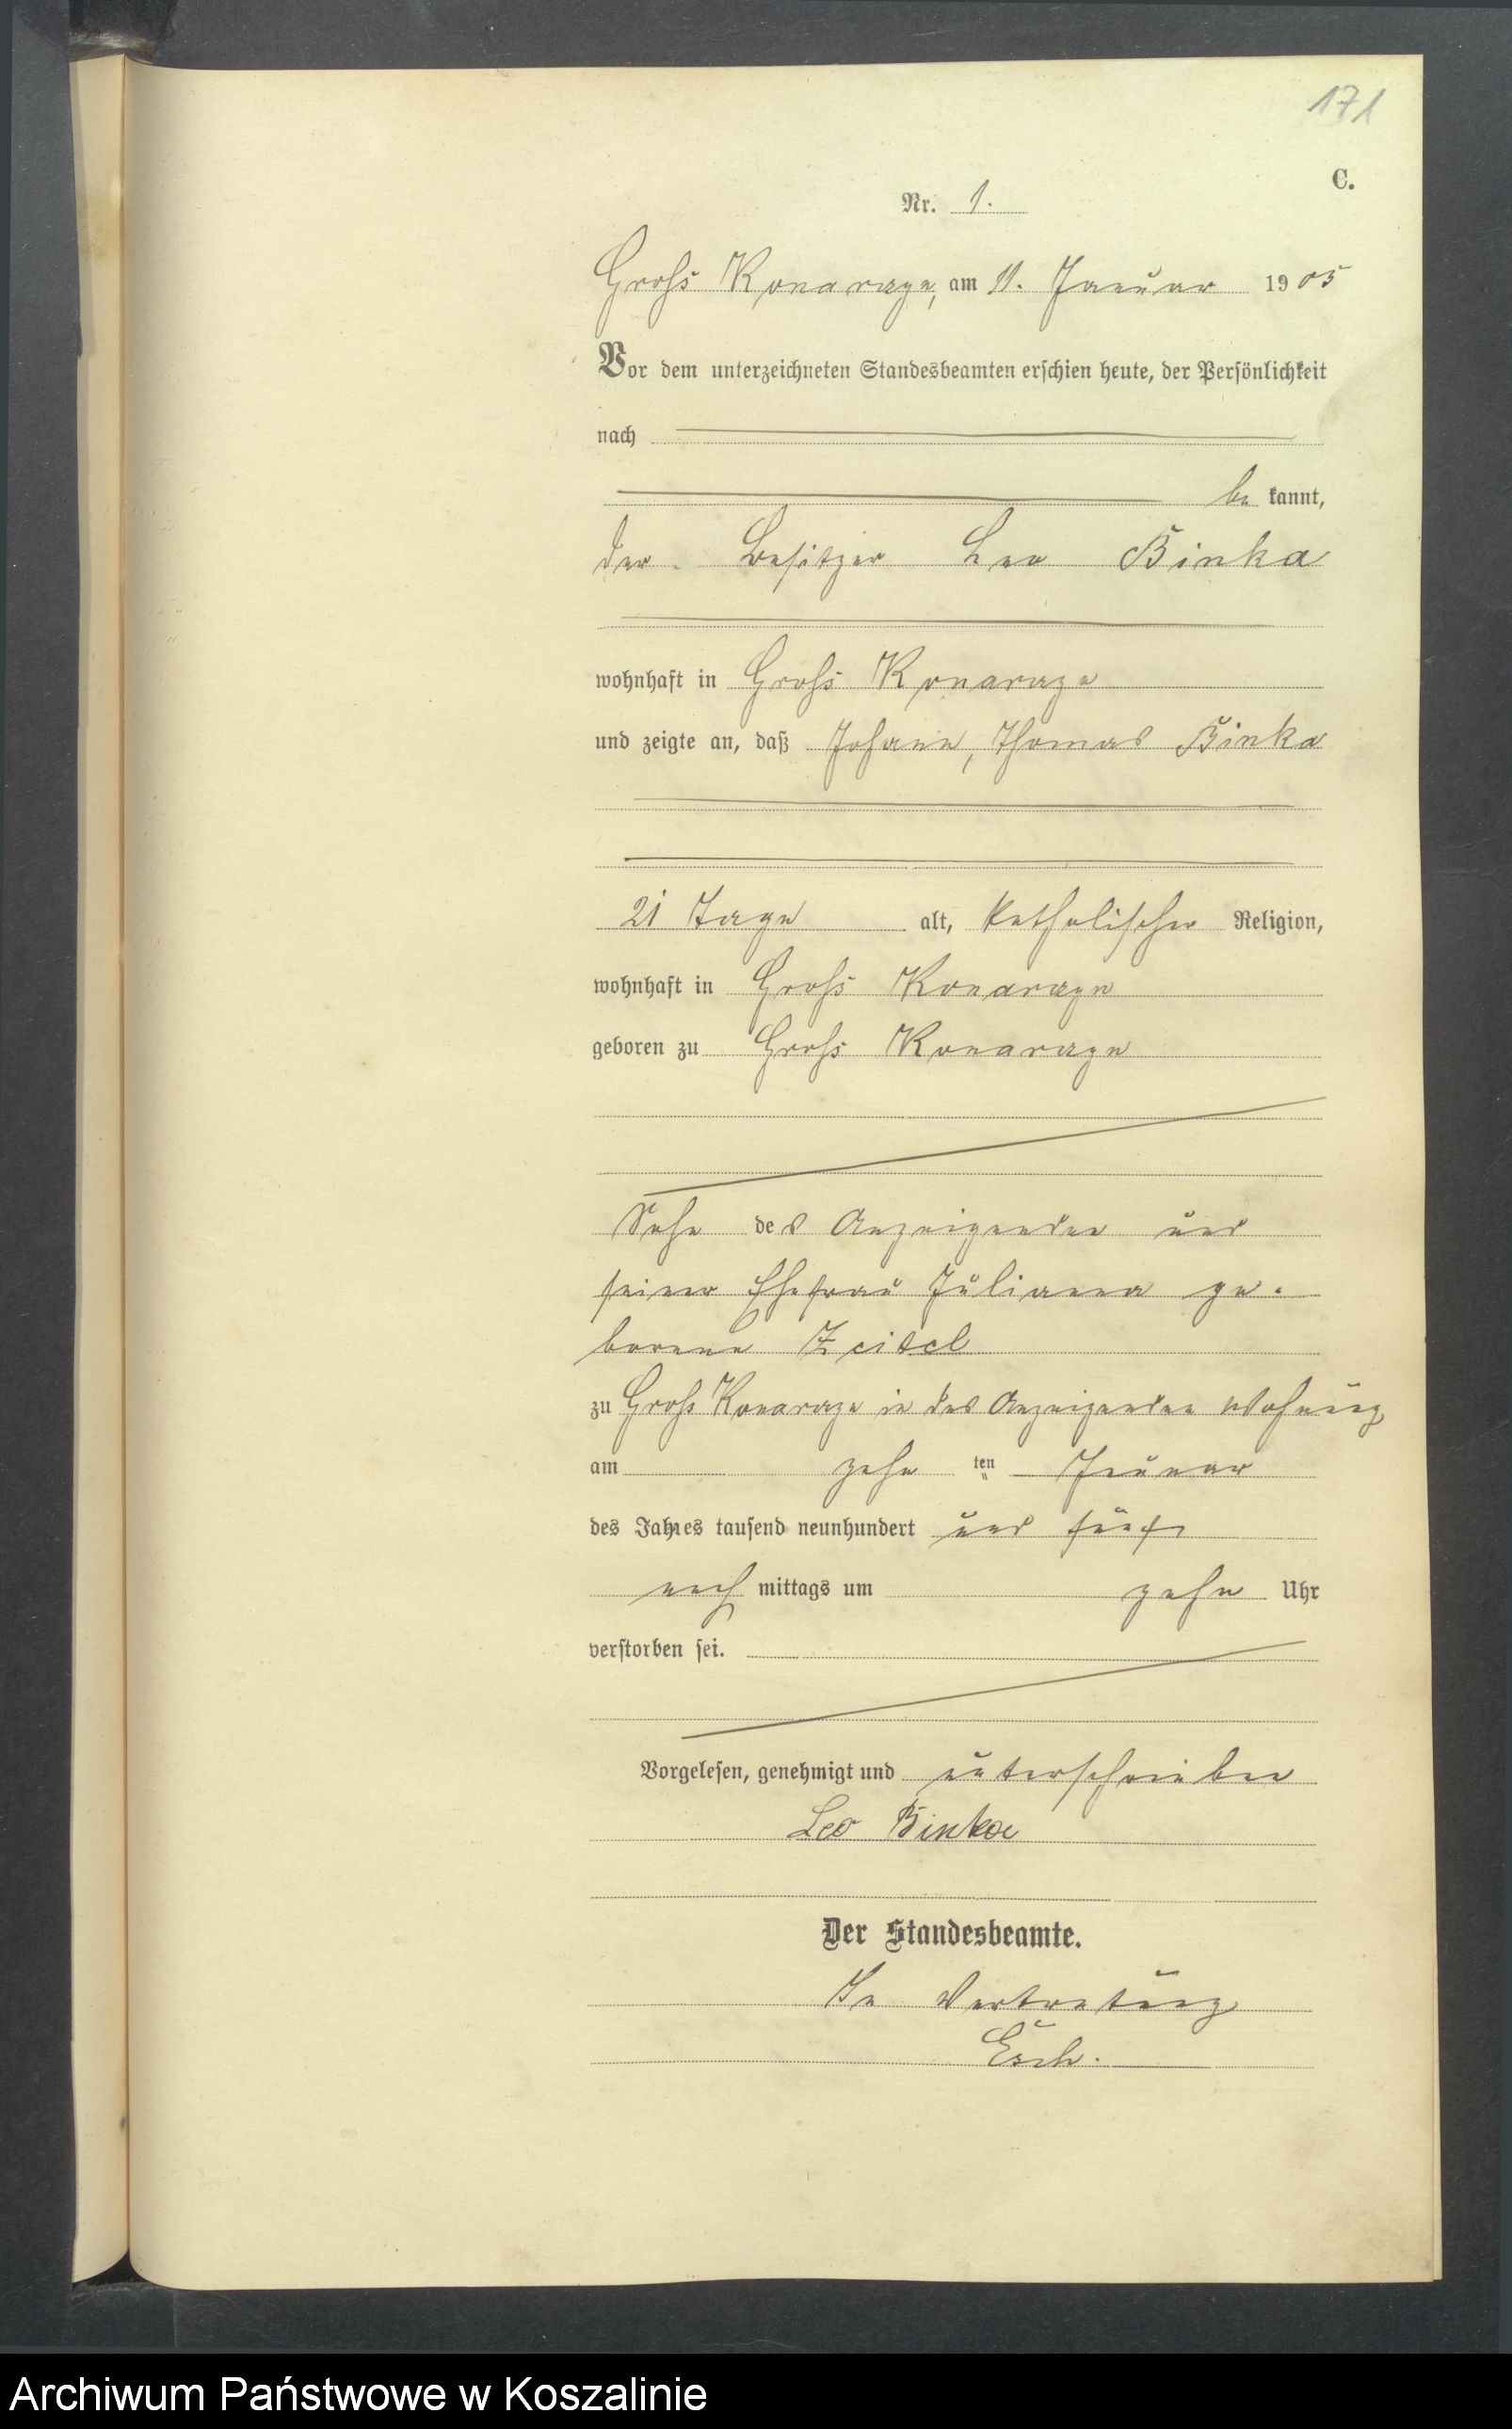 171
C.
Nr. 1.
Groß Konarczyn, am 11. Januar 1905
Vor dem unterzeichneten Standesbeamten erschien heute, der Persönlichkeit
nach
be kannt,
der Besitzer Leo Binka
wohnhaft in Groß Konarczyn
und zeigte an, daß Johann, Thomas Binka
21 Tage alt, katholischer Religion,
wohnhaft in Groß Konarczyn
geboren zu Groß Konarczyn
Sohn des Anzeigenden und
seiner Ehefrau Julianna ge-
borene
zu Groß Konarczyn in des Anzeigenden Wohnung
am zehn ten Januar
des Jahres tausend neunhundert und fünf
nach mittags um zehn Uhr
verstorben sei.
Vorgelesen, genehmigt und unterschrieben
Leo Binka
Der Standesbeamte.
In Vertretung
Esch.
Archiwum Państwowe w Koszalinie